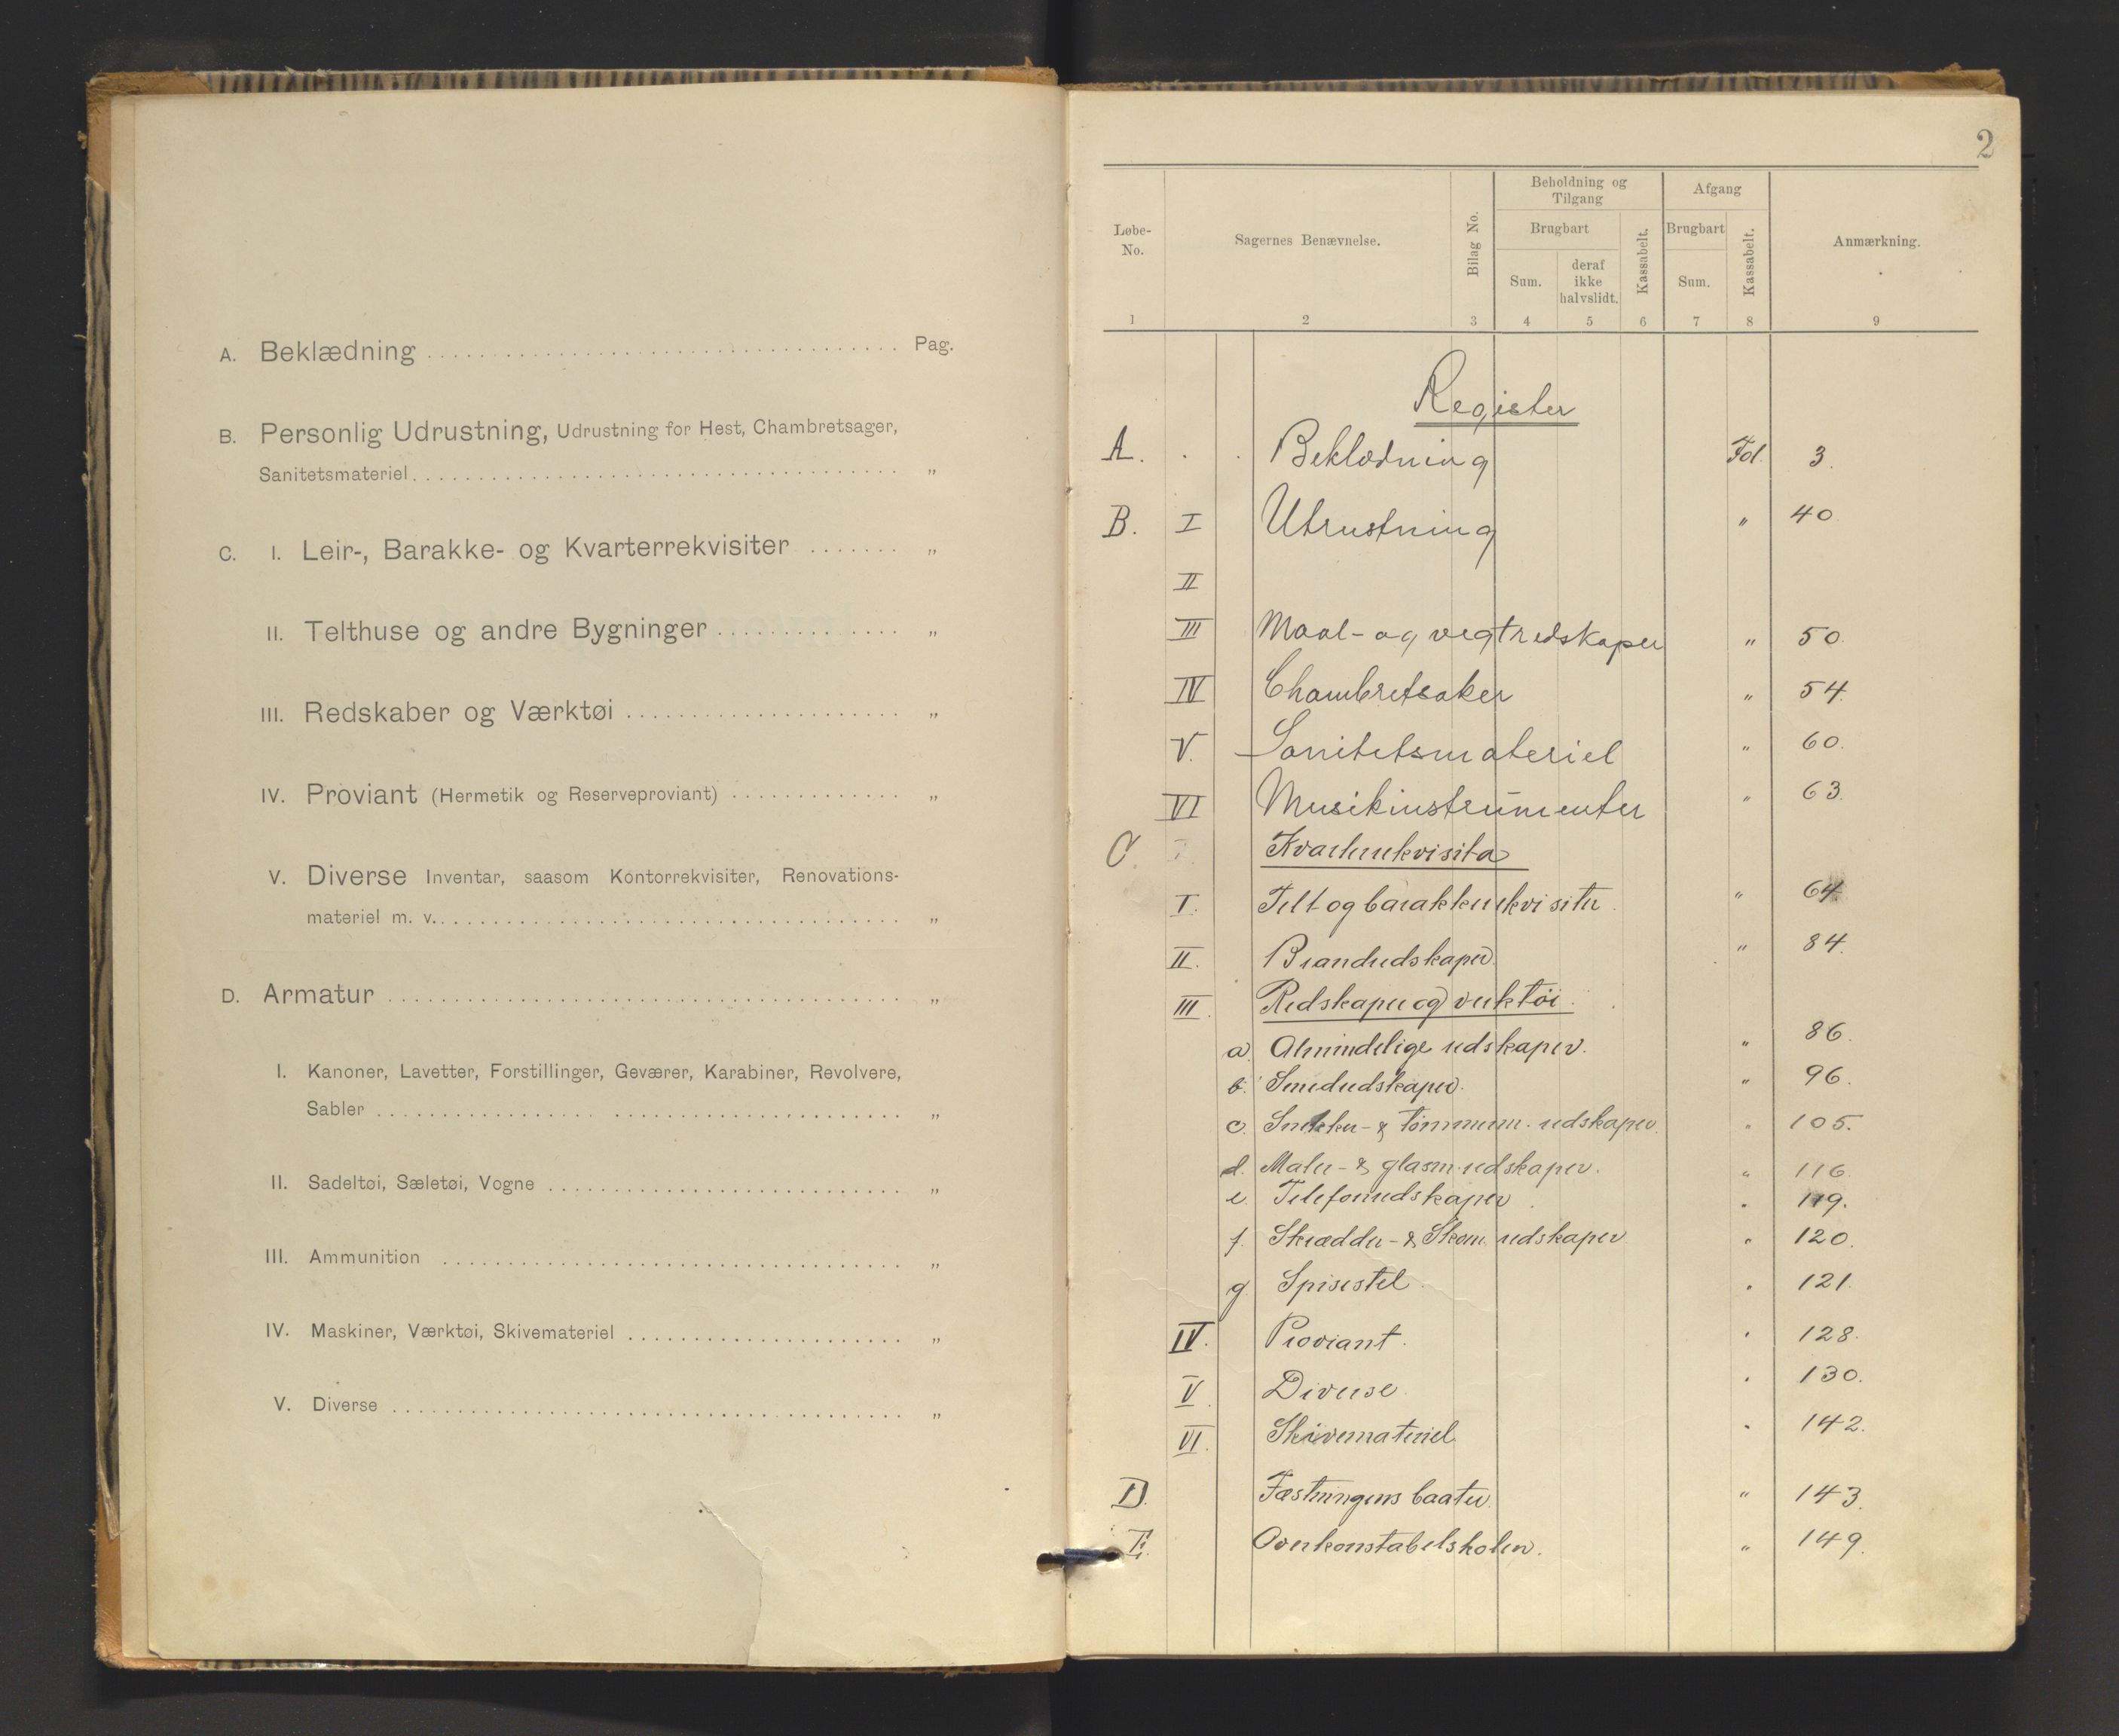 A. Beklædning Pag.
B. Personlig Udrustning, Udrustning for Hest, Chambretsager,
Sanitetsmateriel „
C. I. Leir-, Barakke- og Kvarterrekvisiter „
II. Telthuse og andre Bygninger „
III. Redskaber og Værktøi „
IV. Proviant (Hermetik og Reserveproviant) „
V. Diverse Inventar, saasom Kontorrekvisiter, Renovations-
materiel m. v. „
D. Armatur „
I. Kanoner, Lavetter, Forstillinger, Geværer, Karabiner, Revolvere,
Sabler „
II. Sadeltøi, Sæletøi, Vogne „
III. Ammunition „
IV. Maskiner, Værktøi, Skivemateriel „
V. Diverse „
2
Løbe-
No.
Sagernes Benævnelse.
Bilag No.
Beholdning og
Tilgang
Brugbart
Sum.
deraf
ikke
halvslidt.
Kassabelt.
Afgang
Brugbart
Sum.
Kassabelt.
Anmærkning.
1 2 3 4 5 6 7 8 9
Register
A. Beklædning Fol. 3.
B. I Utrustning " 40
II
III Maal- og vegtredskaper " 50
IV Chambretsaker " 54.
V. Sanitetsmateriel " 60.
VI Musikinstrumenter " 63
C. I. Kvarterrekvisita
I. Telt og barakkerekvisiter. " 64
II. Brandredskaper. " 84.
III. Redskaper og verktöi.
a. Almindelige redskaper. " 86.
b. Smedredskaper. " 96.
c. Snekker- & tömmerm. redskaper. " 105.
d. Maler- & glasm. redskaper. " 116
e. Telefonredskaper " 119.
f. Skrædder- & Skom. redskaper " 120.
g. Spisestel " 121.
IV. Proviant. " 128.
V. Diverse " 130.
VI. Skivemateriel " 142.
D. Fæstningens baater. " 143.
E. Overkonstabelskolen. " 149.